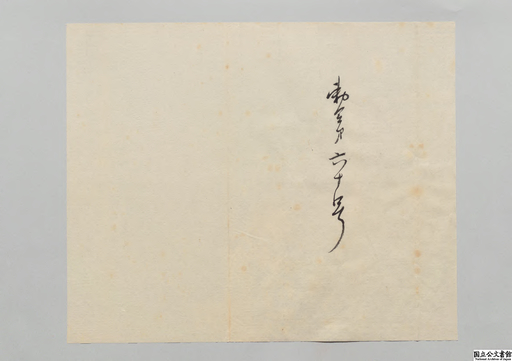 勅令第六十号
国立公文書館
National Archives of Japan